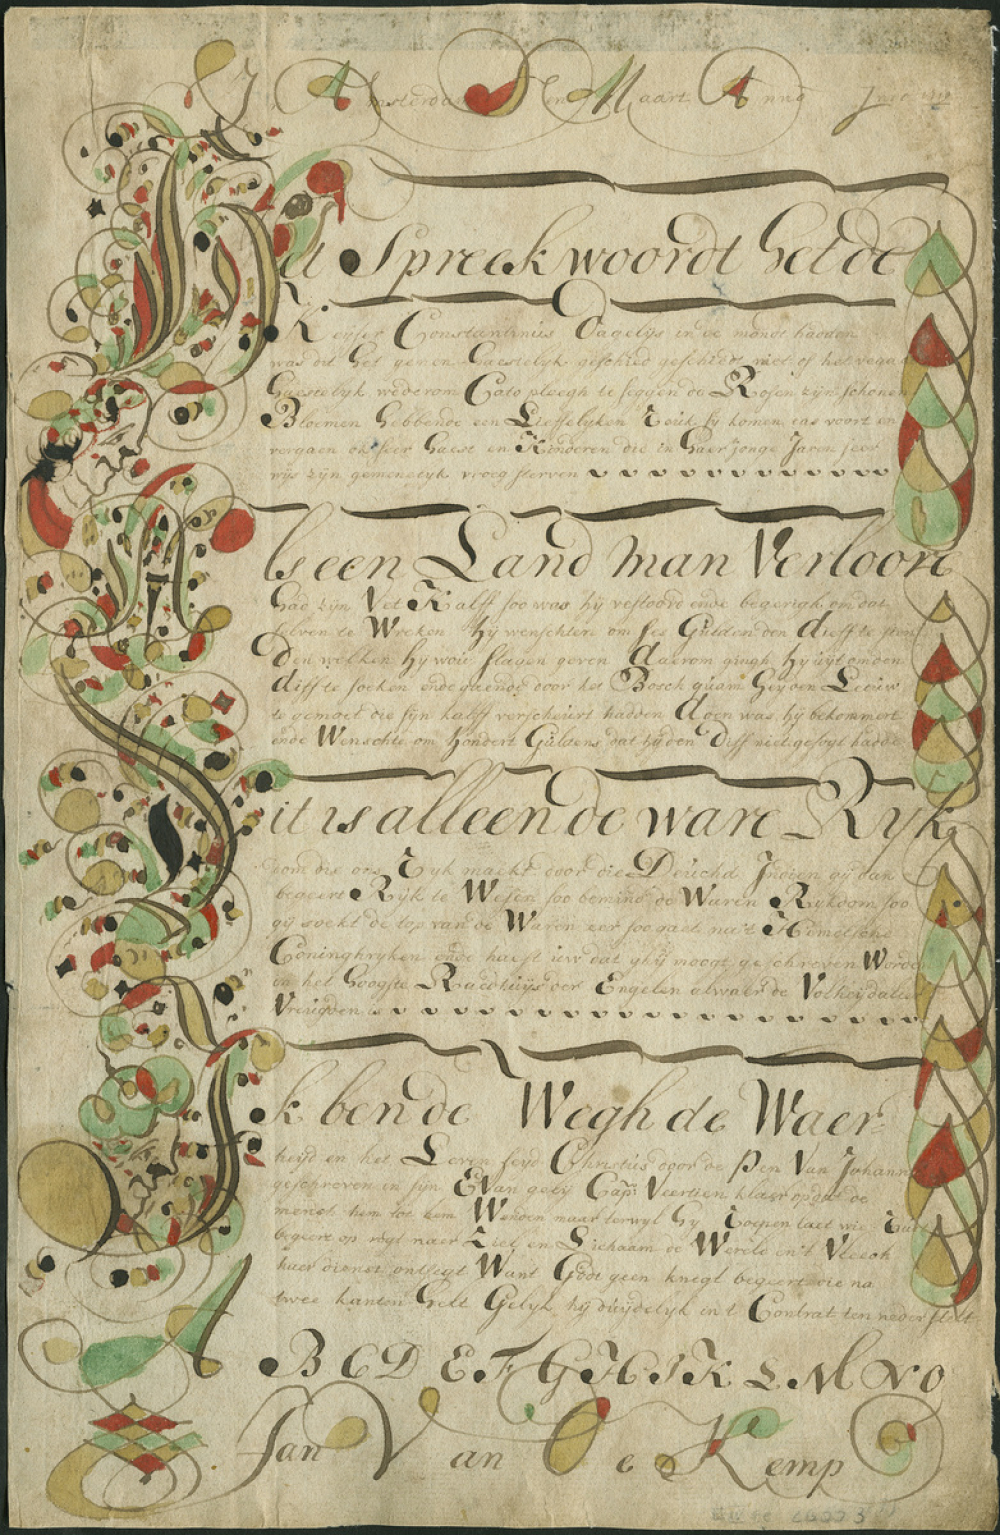 Amsterdam Den Maart Anno
Dit Spreekwoordt het de
Keyser Constantinus Dagelijs in de mondt hadden
was dit het geen Geestelyk geschied geschiedt niet of het waer
Geestelyk wederom Cato pleegh te seggen de Rosen zyn schonen
Bloemen hebbende een Lieffelyken Reuk sy komen ras voort en
vergaen ok seer haest en Kinderen die in haer jonge Jaren seer
wijs zijn gemenelyk vroeg sterven
Als een Land man Verloore
had zijn Vet Kalff soo was hy verstoord ende begerigh om dat
selven te Wreken hy wenschten om ses Gulden den dieff te sien
Den welken hy wou slagen geven daerom gingh hy uijt om den
dieff te soeken ende gaende door het Bosch quam hey den Leeuw
te gemoet die sijn kalff verscheurt hadden doen was hy bekommert
ende Wenschte om hondert Guldens dat hy den Dieff niet gesogt hadde
Dit is alleen de ware Ryk
dom die ons Ryk maekt door die Deuchd Indien gij dan
begeert Rijk te Wesen soo bemind de Waren Rykdom soo
gij soekt de top van de Waren eer soo gaet na't Hemelsche
Coninghryken ende haest uw dat ghij moogt geschreven Worde
in het hoogste Raedhuijs der Engelen alwaer de Volheyd aller
Vreugden is
Ik ben de Wegh de Waer
heijd en het Leven seyd Christus door de Pen Van Johann
geschreven in sijn Evangely Cap: Veertien klaer op dat de
mensch hem tot hem Wenden maar terwyl hy
begeert op regt naer Ziel en Lichaam de Wereld en't Vleesch
haer dienst ontsegt Want Godt geen knegt begeert die na
twee kanten helt Gelyk hy duydelyk in t Contrat ten neder stelt
A B C D E F G H I K L M N O
Jan Van De Kemp